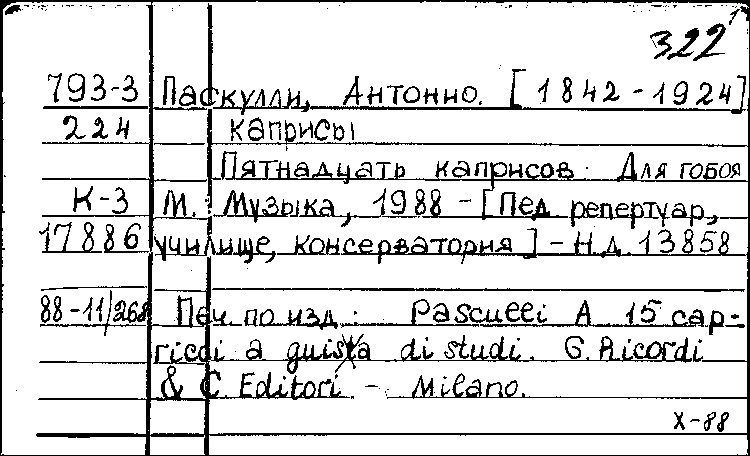 322
793-3 Паскулли, Антонио. [1842-1924]
224 Каприсы
Пятнадцать каприсов. Для гобоя
К-3 М. Музыка, 1988 - [Пед. репертуар,
17886 училище, консерватория] - Н.д. 13858
88-11/268 Печ. по изд.: Pasculli A 15 cap-
ricci a guisa di studi. G. Ricordi
& C. Editori - Milano.
X-88